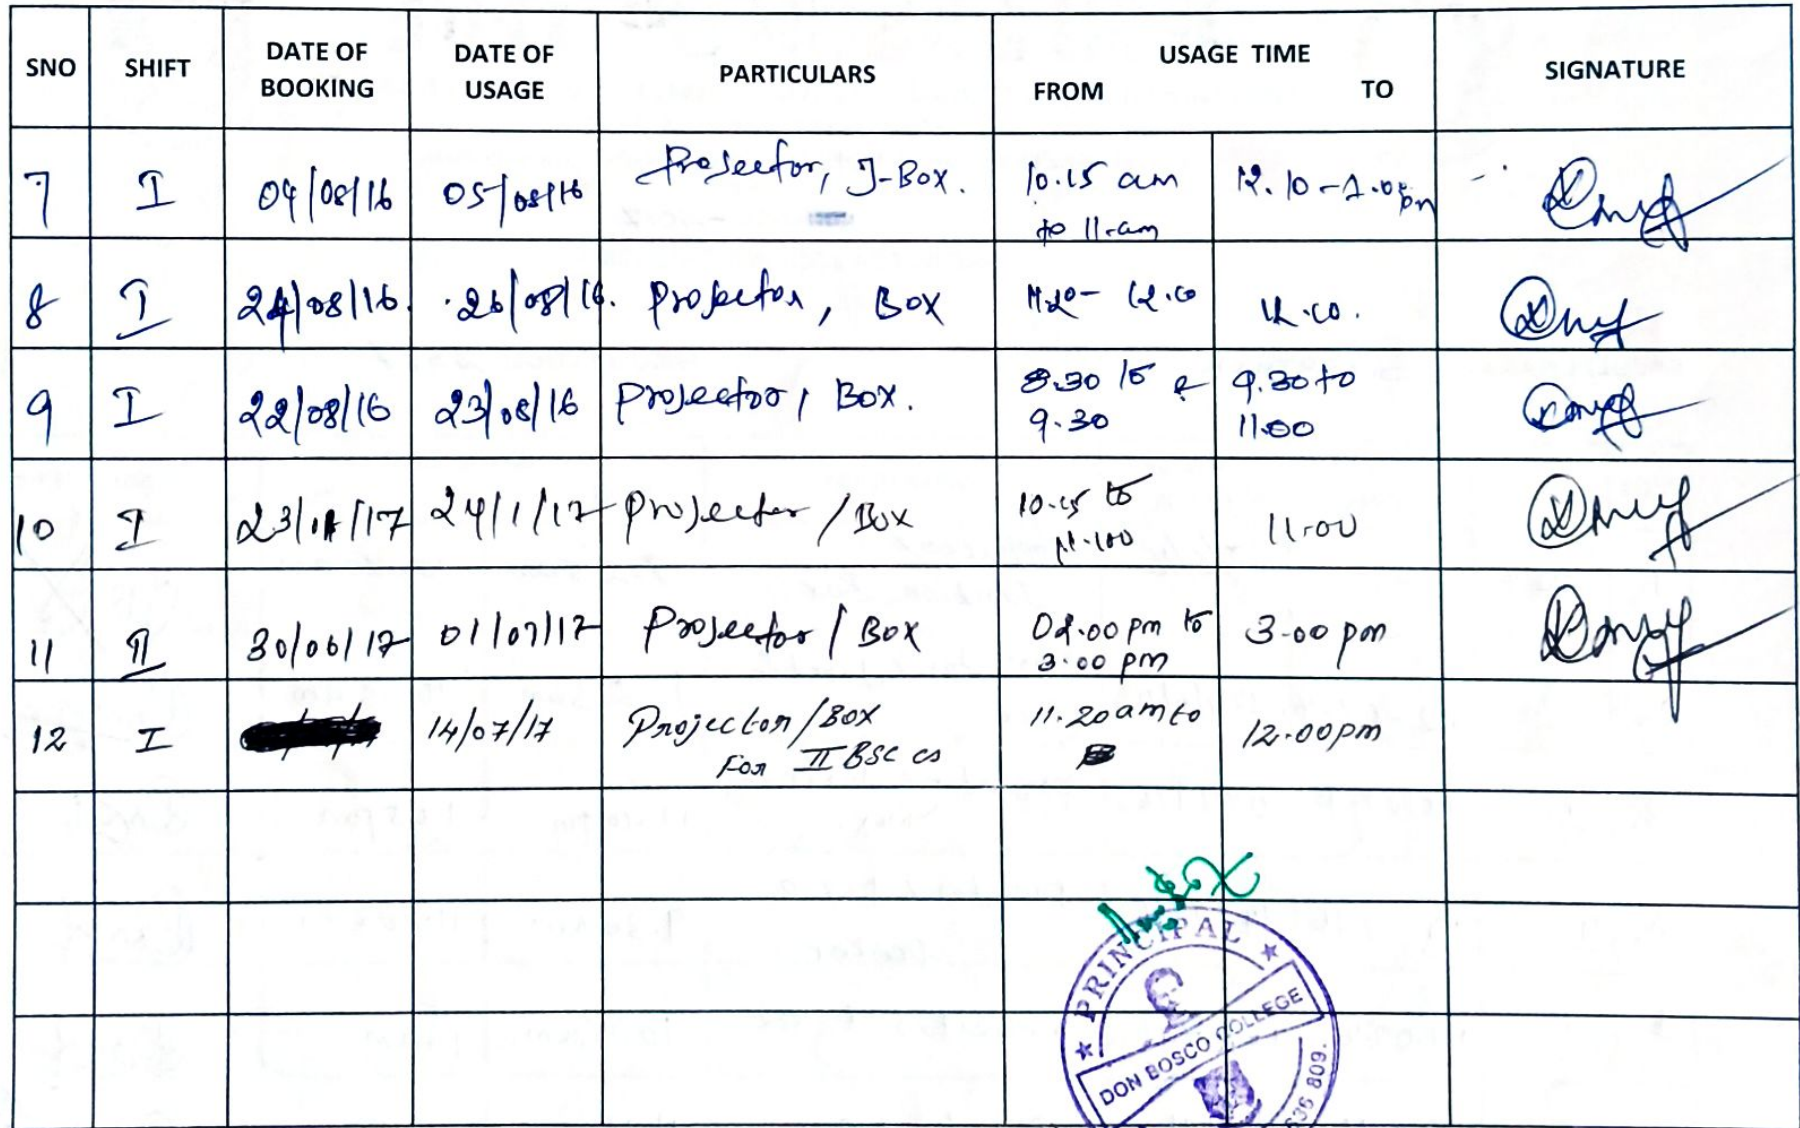 SNO SHIFT DATE OF BOOKING DATE OF USAGE PARTICULARS USAGE TIME FROM TO SIGNATURE
7 I 04/08/16 05/08/16 Projector, J-Box. 10.15 am to 11.am 12.10-1.05pm
8 I 24/08/16. 26/08/16. Projector, Box 11.20- 12.10 12.10.
9 I 22/08/16 23/08/16 Projector, Box. 8.30 to 9.30 9.30 to 11.00
10 I 23/1/17 24/1/17 Projector / Box 10.15 to 11.00 11.00
11 II 30/06/17 01/07/17 Projector / Box 02.00 pm to 3.00 pm 3.00 pm
12 I 14/07/17 Projector/Box For II BSC CS 11.20am to 12.00pm
PRINCIPAL
DON BOSCO COLLEGE
636 809.